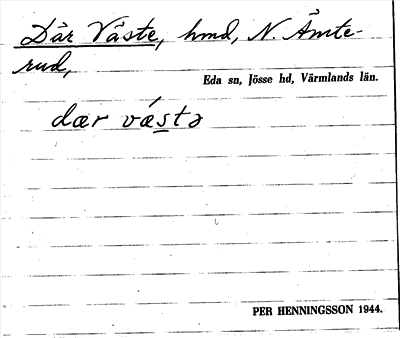 Där Väste, hmd, N. Ämte-
rud,
Eda sn, Jösse hd, Värmlands län.
dær vá̱stə
PER HENNINGSSON 1944.